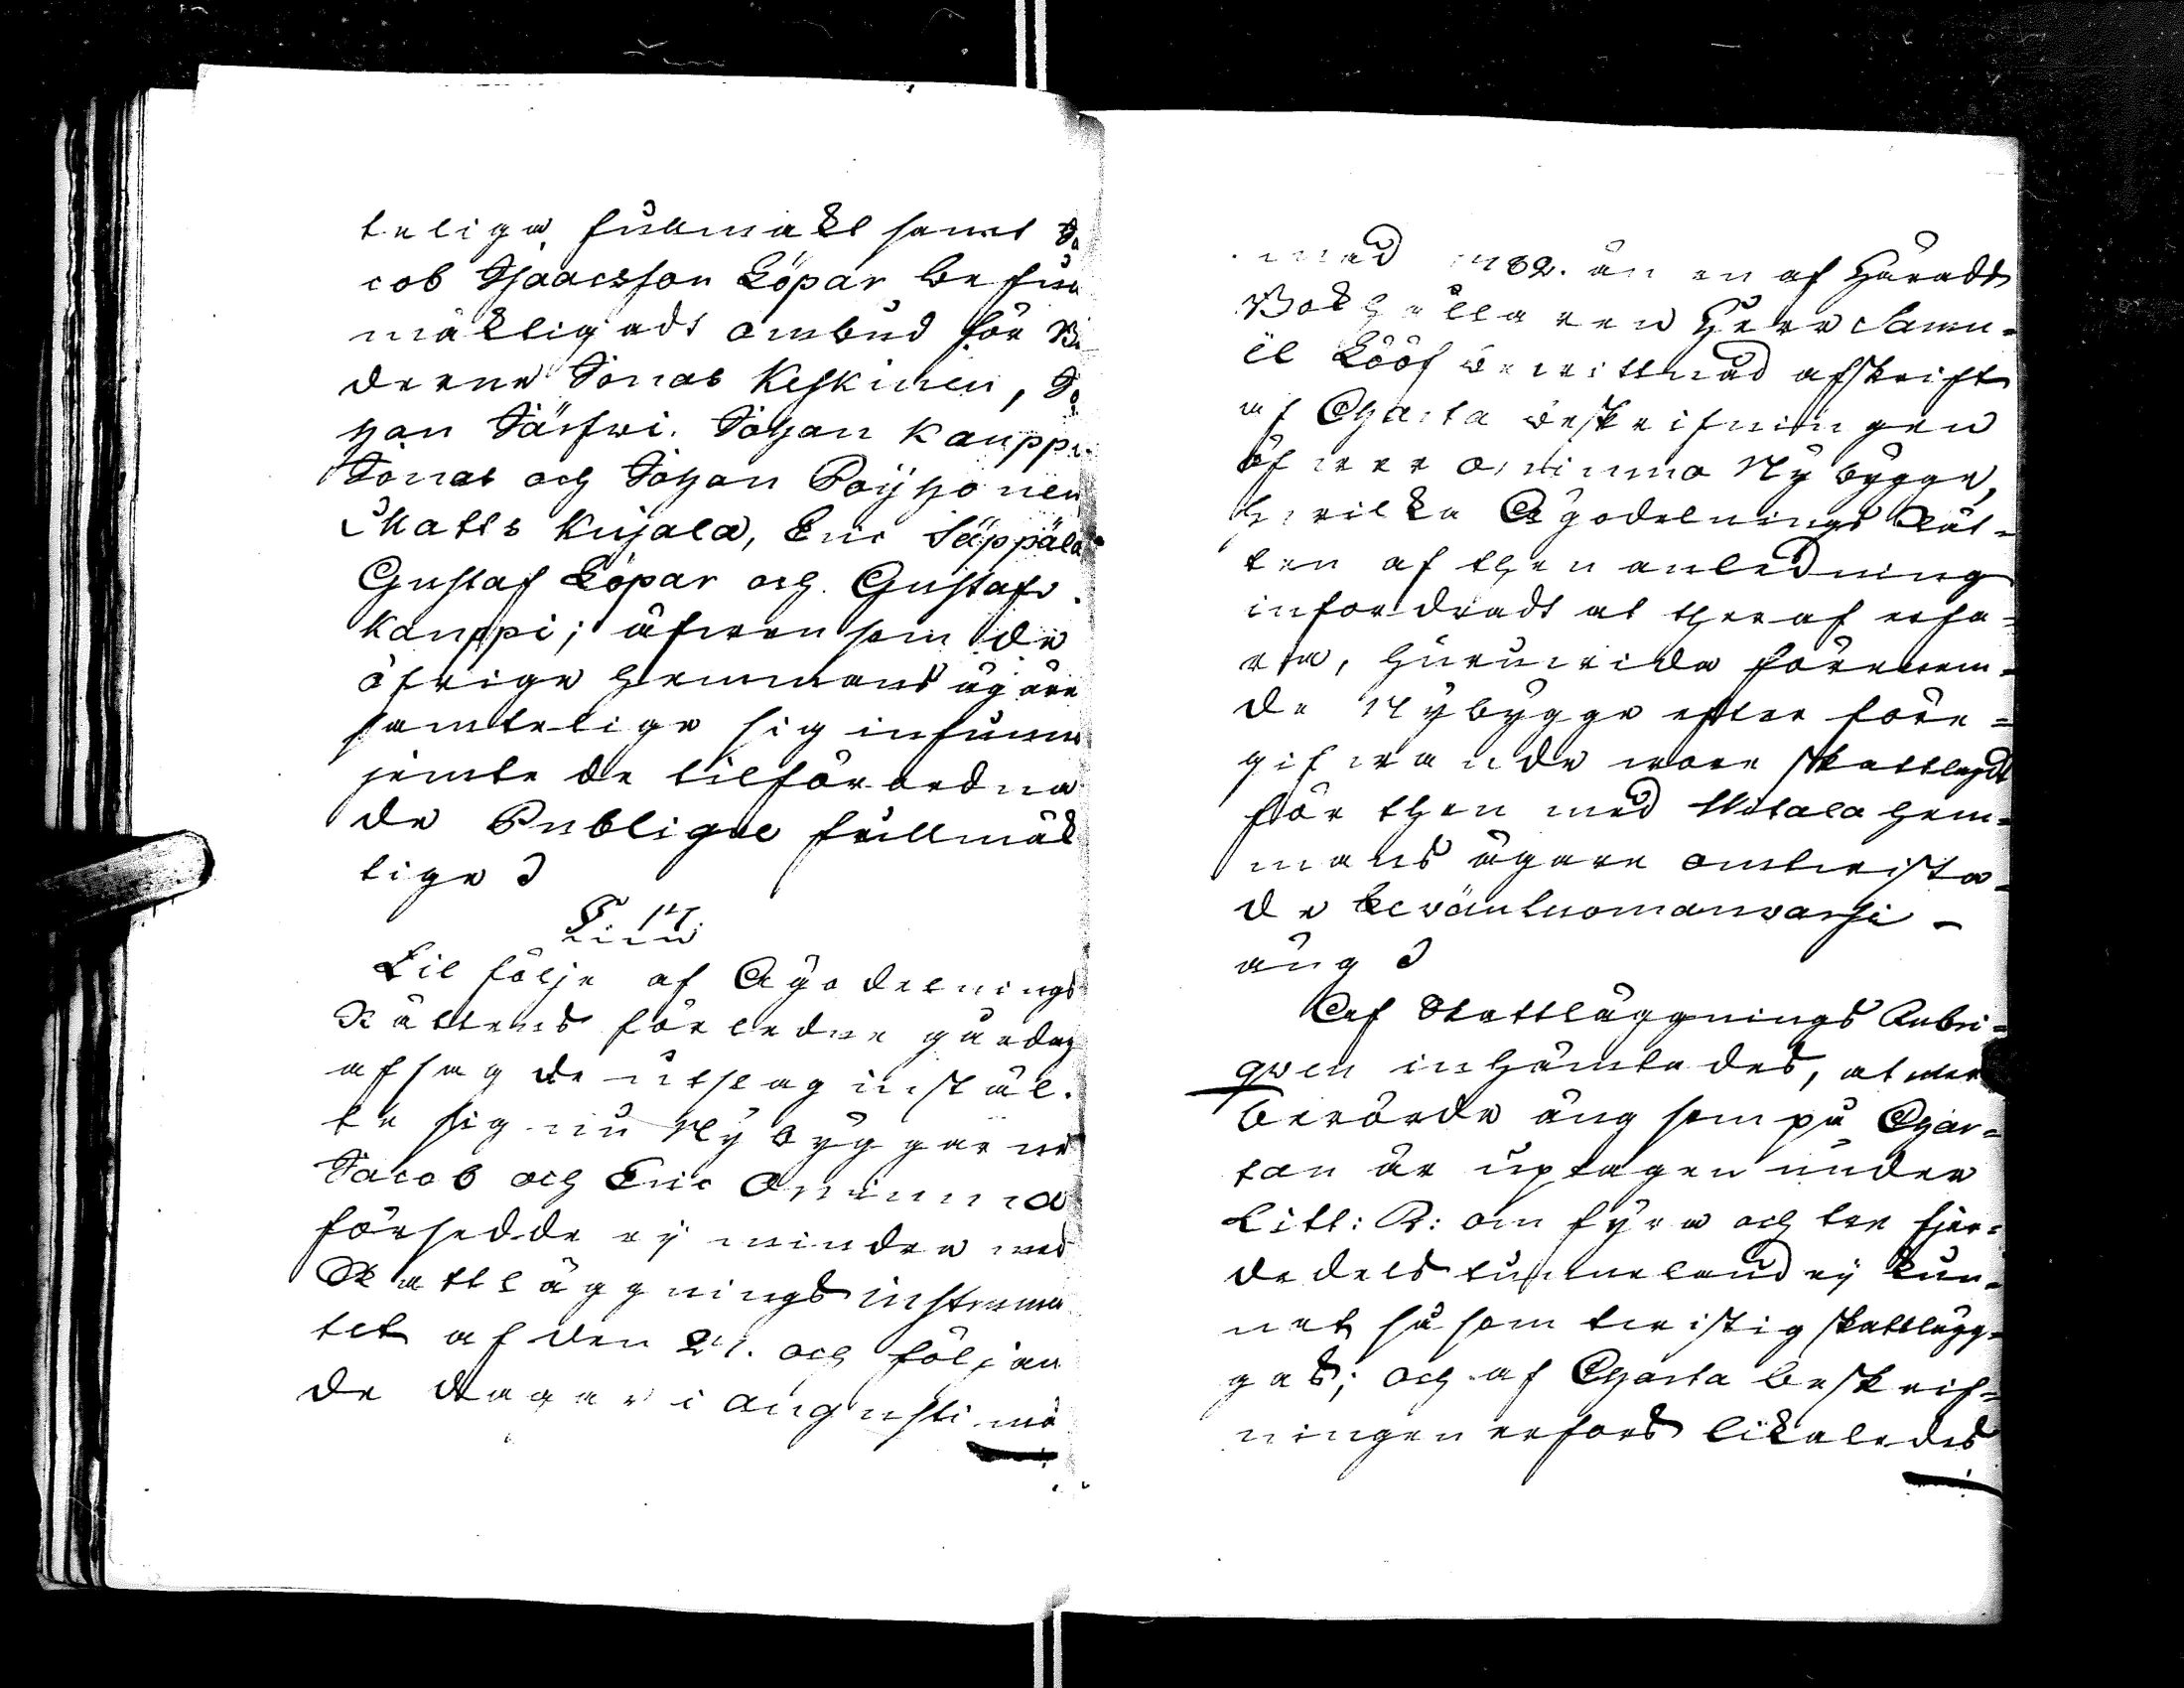 telige fullmakt samt Ja
cob Isaacsson Löpar befull
mäktigadt ombud för Bö
derne Jonas Keskinen, Jo
han Järfwi. Johan Kauppi.
Jonas och Johan Pöyhönen
Matts Kujala, Eric Säppälä
Gustaf Löpar och Gustaf
Kauppi; äfwen som de
öfrige hemmans ägare
samtelige sig infunno
jemte de tilförordna
de Publique fullmäk
tige
§ 17.
Til följe af Ägodelnings
Rättens förledne gårdag
afsagde utslag instäl-
te sig nu Nybyggarne
Jacob och Eric Oninma
försedde ej mindre med
Skattläggnings instrumen
tet af den 27. och följan
de dagar i Augusti må
nad 1782. än en af Härads
Bokhållaren Herr Samu-
el Lööf bewittnad afskrift
af Charta beskrifningen
öfwer Oninma Nybygge,
hwilka Ägodelnings Rät-
ten af then anledning
infordradt at theraf erfa-
ra, huruwida förenem-
de Nybygge efter före-
gifwande wore skattlagdt
för then med Matala hem-
mans ägare omtwista-
de Lewäntuomanwarsi -
äng
Af Skattläggnings Rubri-
quen inhämtades, at mer
berörde äng som på Char-
tan är uptagen under
Litt: R: om fyra och tre fjer-
dedels tunneland ej kun-
nat såsom twistig skattlägg-
gas; och af Charta beskrif-
ningen erfors likaledes